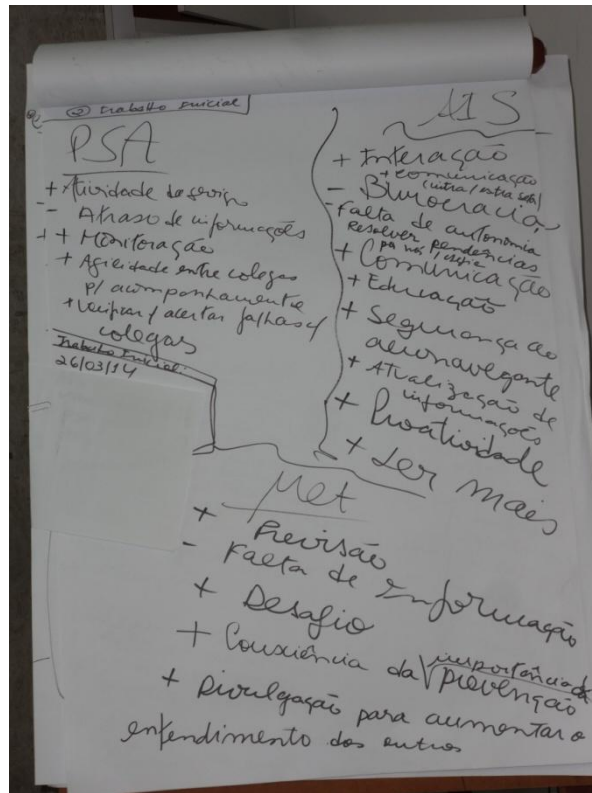 ② Trabalho Inicial
PSA
+ Atividade de serviço
- Atraso de informações
+ + Monitoração
+ Agilidade entre colegas
p/ acompanhamento
+ Verificar / alertar falhas
colegas
Trabalho Inicial:
26/03/14
AIS
+ Interação
+ comunicação
(intra / extra setor)
- Burocracia
- Falta de autonomia
Resolver pendências
por nós /
+ Comunicação
+ Educação
+ Segurança ao
aeronavegante
+ Atualização de
informações
+ Proatividade
+ Ler mais
Met
+ Previsão
- Falta de Informação
+ Desafio
+ Consciência da importância da
prevenção
+ Divulgação para aumentar o
entendimento dos outros